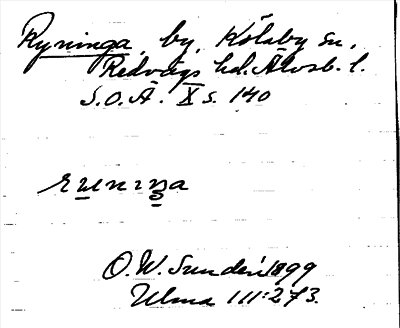 Ryninga, by, Kölaby sn,
Redvägs hd. Älvsb. l.
S.O.Ä. X s. 140
O.W. Sundén 1899
Ulma 111:273.